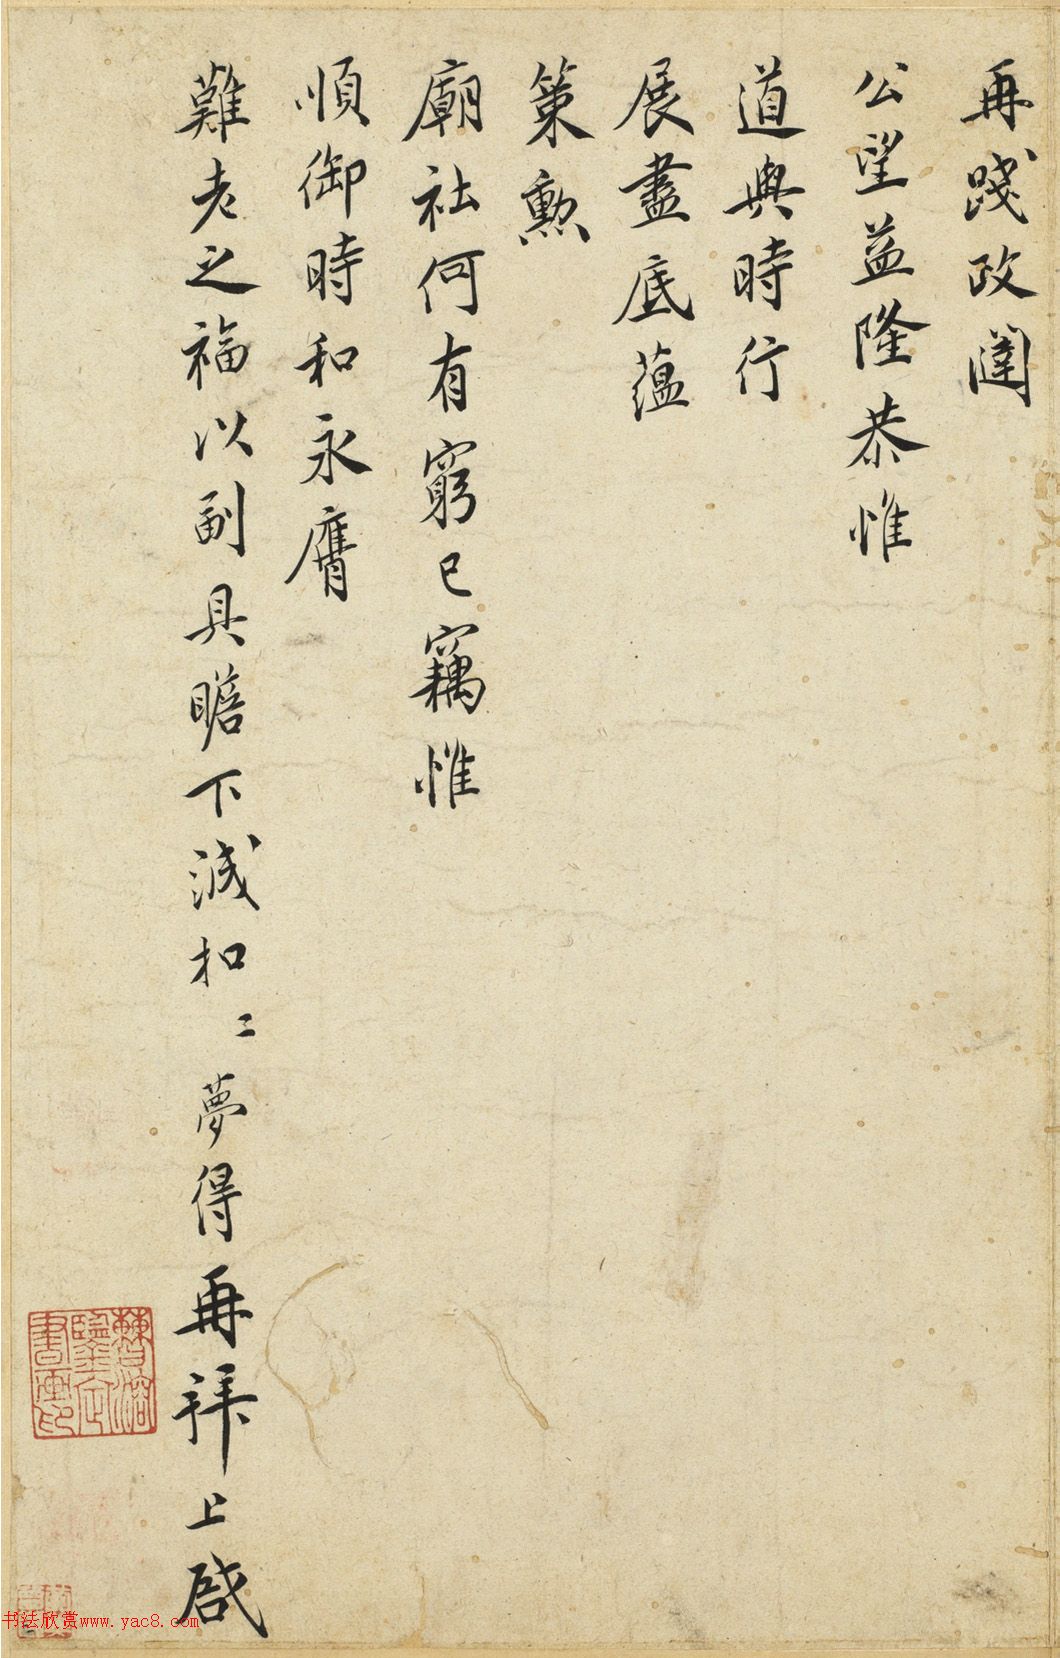 再踐政闥
公望益隆恭惟
道與時行
展盡底蘊
策勲
廟社何有窮已竊惟
順御時和永膺
難老之福以副具瞻下誠扣〻〻夢得再拜上啟
曹溶
鑒定
書畫印
书法欣赏www.yac8.com